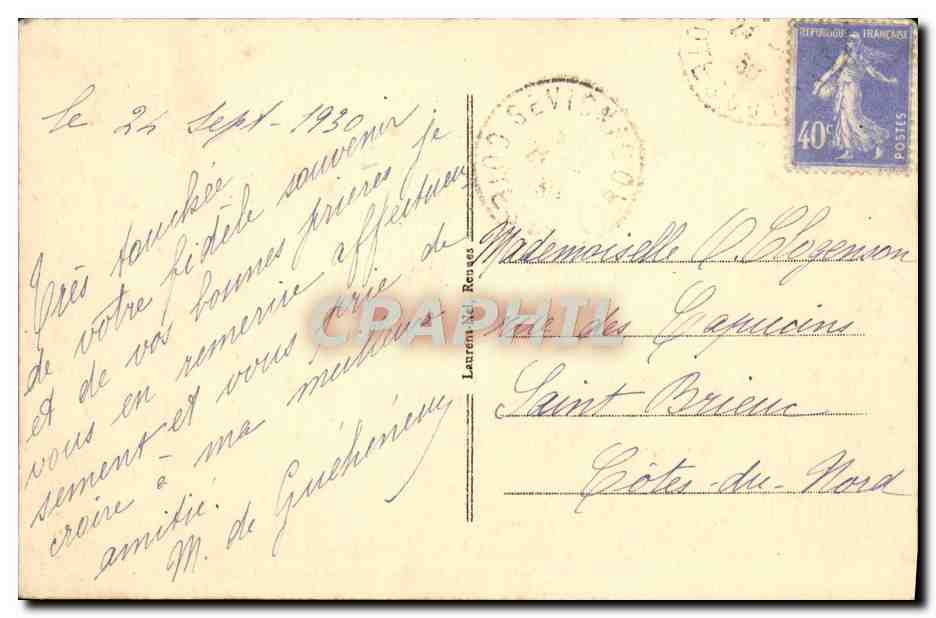 Le 24 Sept - 1930
Très touchée
de votre fidèle souvenir
et de vos bonnes prières je
vous en remercie affectueu-
sement et vous prie de
croire à ma meilleure
amitié.
M. de Guéhéneuc
Laurent-Nel, Rennes
CPARHIL
REPUBLIQUE FRANÇAISE
40c
POSTES
24
30
SEVIGNAC
Mademoiselle O. Clogenson
Rue des Capucins
Saint Brieuc
Côtes-du-Nord